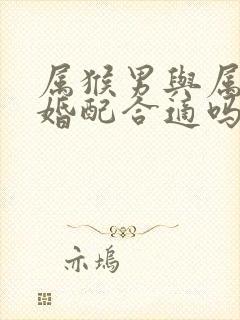 属猴男與属
婚配合適吗
亦塢